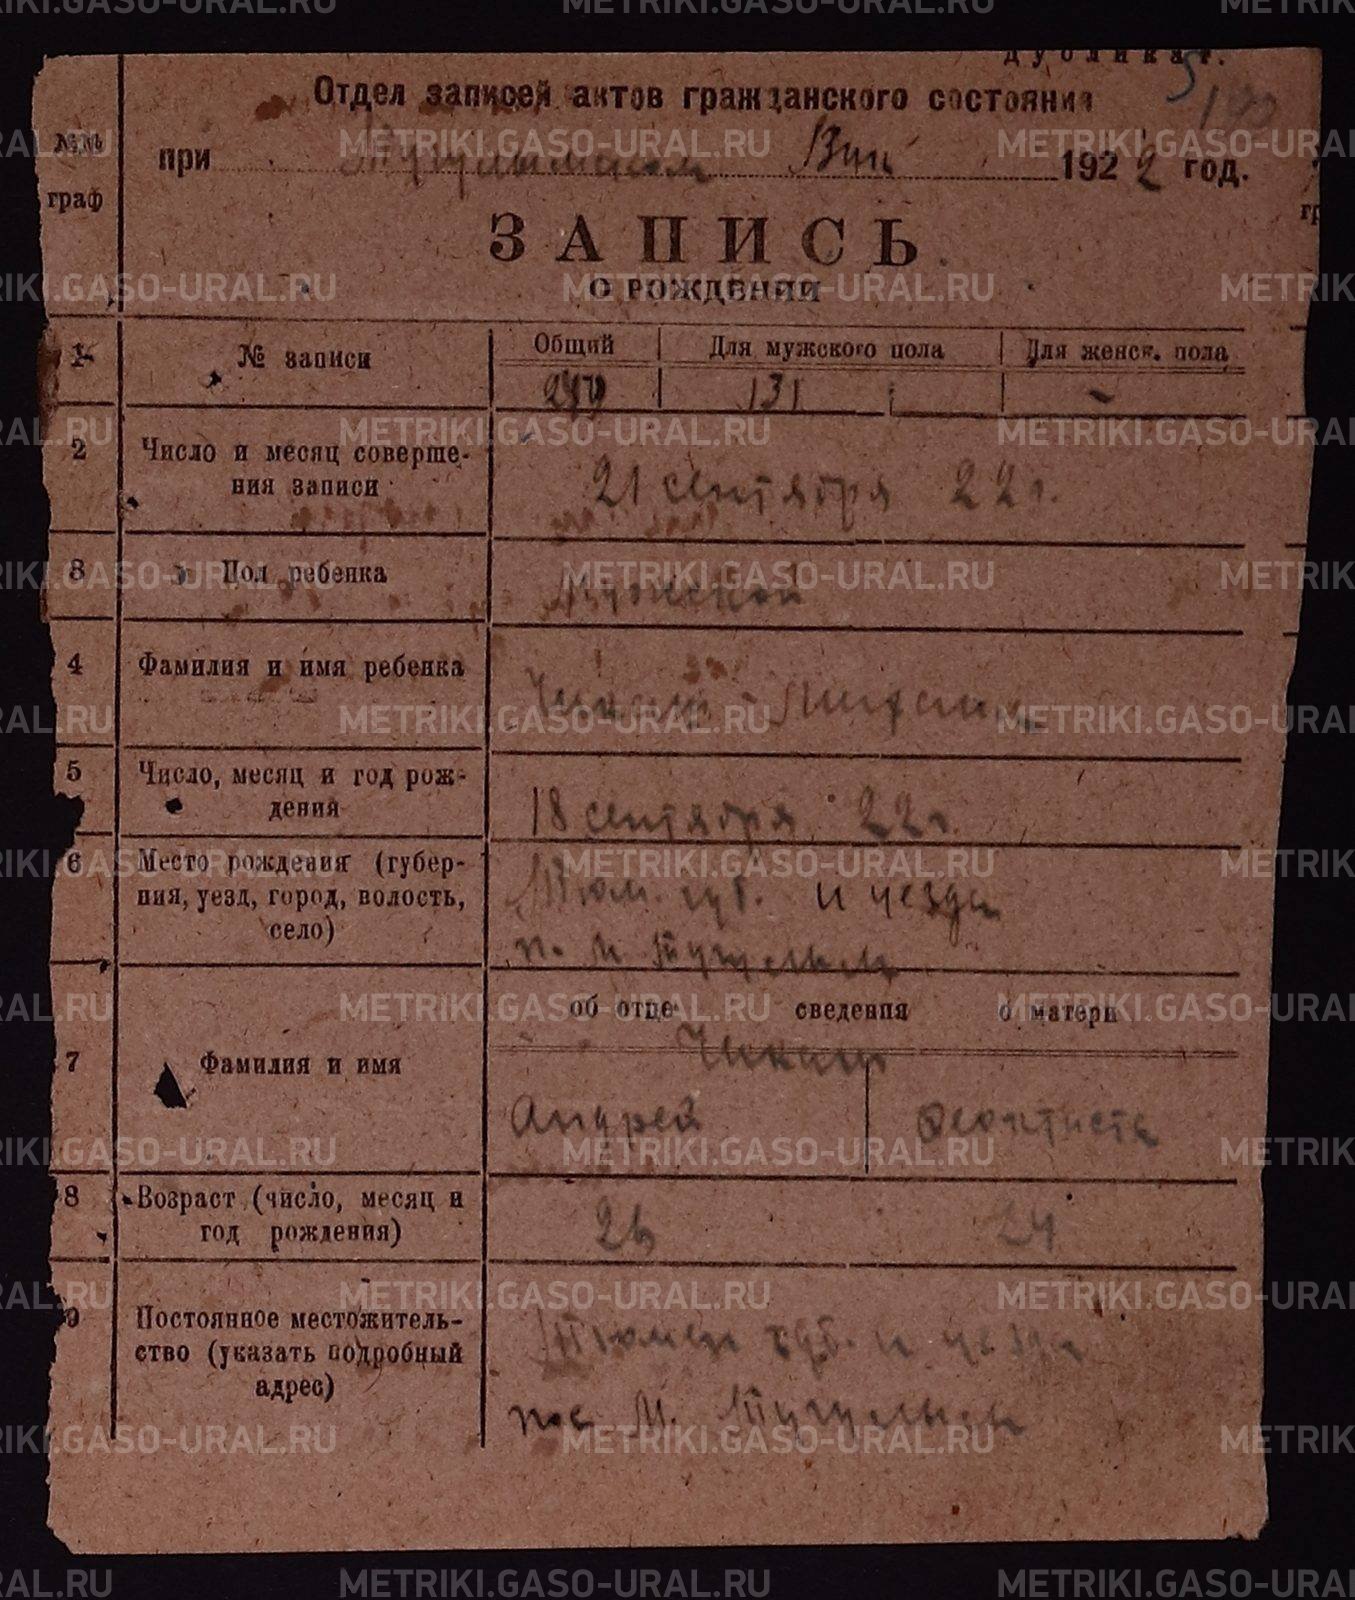 дубликат.
Отдел записей актов гражданского состояния
№№ граф
при Тугулымском Вик 1922 год.
ЗАПИСЬ
О РОЖДЕНИИ
1 № записи Общий Для мужского пола Для женск. пола
131 -
2 Число и месяц соверше-
ния записи
21 сентября 22 г.
3 Пол ребенка Мужской
4 Фамилия и имя ребенка
5 Число, месяц и год рож-
дения
18 сентября 22 г.
6 Место рождения (губер-
ния, уезд, город, волость,
село)
Тюм. губ. и уезда
п. М Тугулым
об отце сведения о матери
7 Фамилия и имя
Андрей Феоктиста
8 Возраст (число, месяц и
год рождения)
26 24
9 Постоянное местожитель-
ство (указать подробный
адрес)
Тюмен губ. и уезда
пос М. Тугулым
METRIKI.GASO-URAL.RU